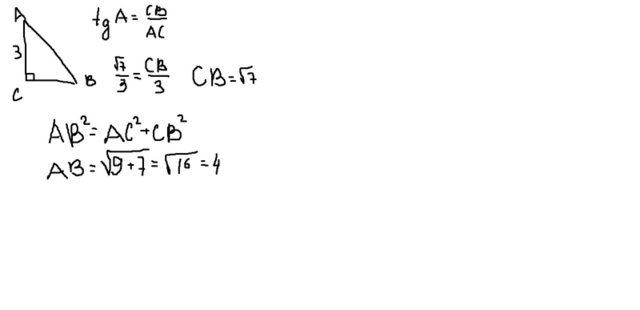 A
tg A = CB/AC
3
√7/3 = CB/3 CB = √7
B
C
AB² = AC² + CB²
AB = √9+7 = √16 = 4